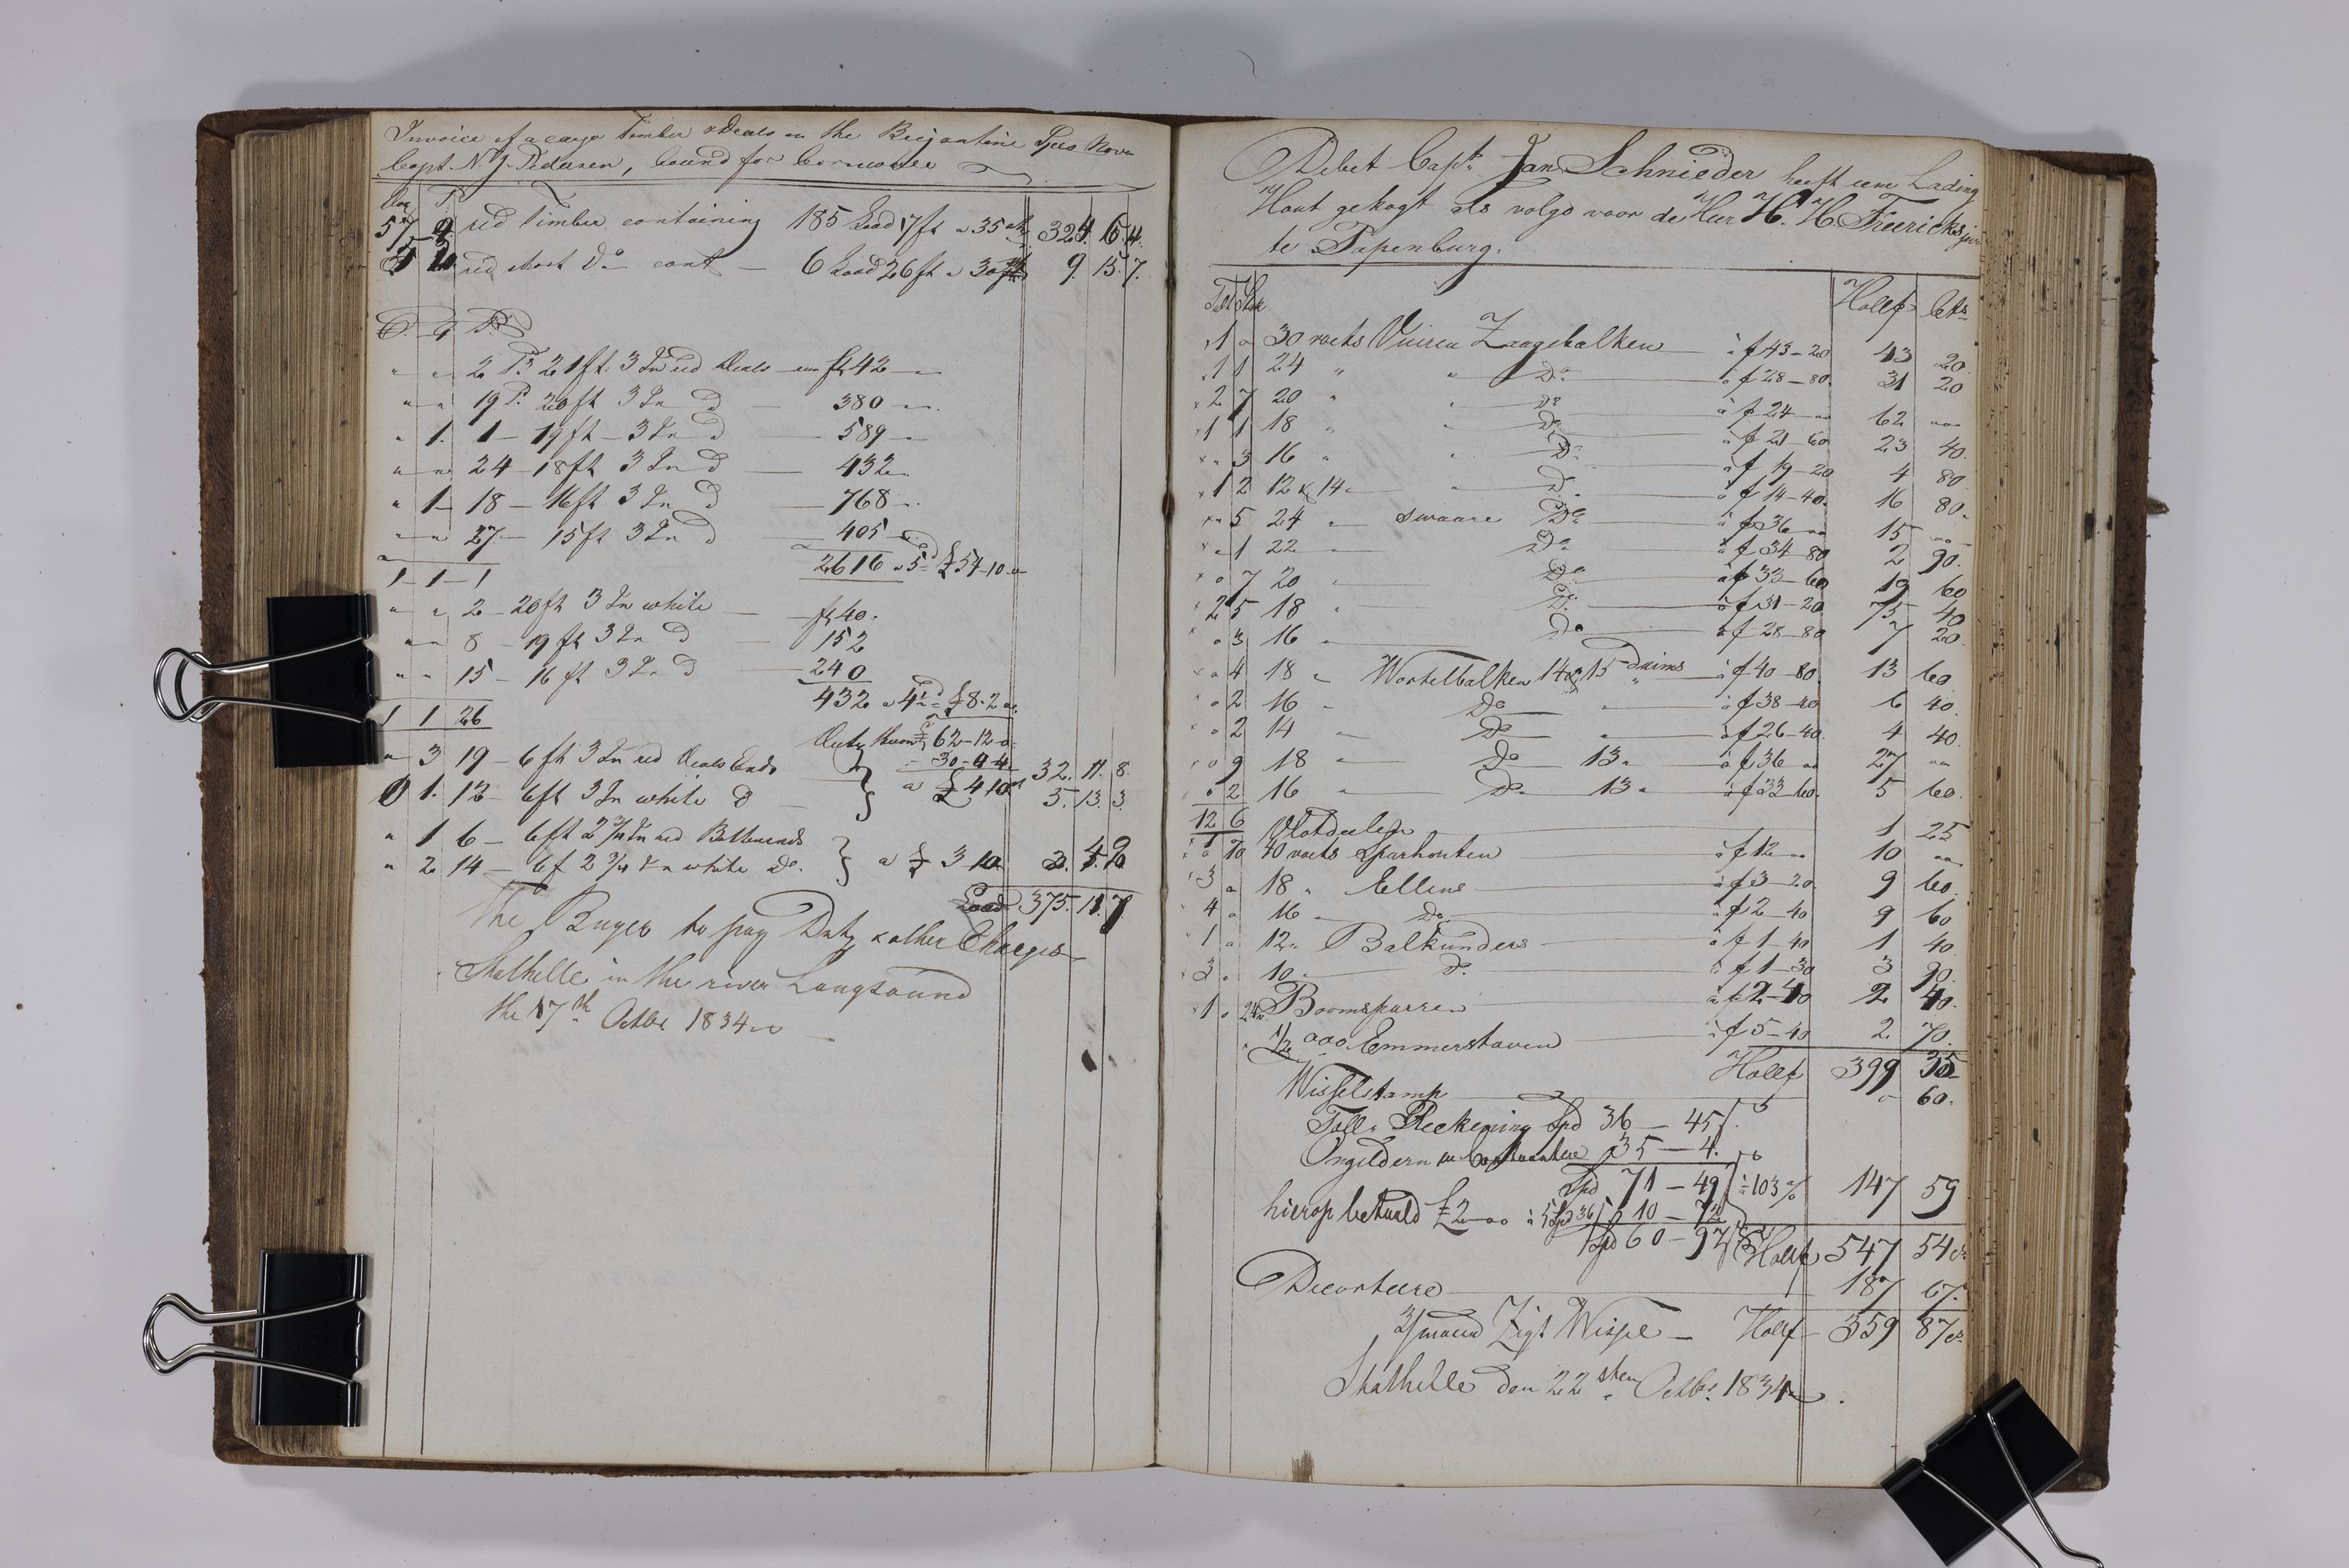 Invoice of a cargo Timber & Deals in the Brigantine Spes Nova
Capt. N. J. Pedersen, bound for Cornwall
57 9 red Timber containing 185 Load 17 ft a 35 sh 324. 6. 4.
red short Do cont — 6 Load 26 ft a 30 sh 9. 15. 7.
C. T. P.
" " 2 Ps 21 ft. 3 In red Deals — 42 —
" " 19 P. 20 ft 3 In D — 380 —
" 1. 1 — 19 ft — 3 In D — 589 —
" " 24 — 18 ft 3 In D — 432 —
" 1 — 18 — 16 ft 3 In D — 768 —
" " 27 — 15 ft 3 In D — 405 —
1 — 1 — 1 2616 a 5d £ 54 — 10 — "
" " 2 — 20 ft 3 In white — 40.
" " 8 — 19 ft 3 In D — 152
" " 15 — 16 ft 3 In D — 240
1 1 26 432 a 4½d £ 8. 2 "
Duty thereon £ 62 — 12 — "
" 3 19 — 6 ft 3 In red Deals Ends — 30 — 0 — 4 32. 11. 8.
0 1. 13 — 6 ft 3 In white D — a £ 4 10 sh 5. 13. 3.
" 1 6 — 6 ft 2¾ In red Battenends
" 2 14 — 6 f 2¾ In white Do. a £ 3 10 2.
375. 11. 7.
The Buyer to pay Duty & other Charges
Stathelle in the river Langsound
the 17th Octbr 1834
Debet Captn Jan Schnieder heeft een Lading
Hout gekogt als volgd voor de Heer H. H. Freericks jun
te Papenburg.
Hollf Cts
1 " 30 voets Vuiren Zaagebalken à f 43 — 20 43 20
1 1 24 " " Do à f 28 — 80 31 20
2 7 20 " " Do à f 24 — " 62 "
1 1 18 " " Do à f 21 — 60 23 40
" 3 16 " " Do à f 19 — 20 4 80
1 2 12 & 14 " " Do à f 14 — 40 16 80
" 5 24 " swaare Do à f 36 — " 15 "
" 1 22 " Do à f 34 — 80 2 90
" 7 20 " Do à f 33 — 60 19 60
2 5 18 " Do à f 31 — 20 75 40
" 3 16 " Do à f 28 — 80 7 20
" 4 18 " Wortelbalken 14 & 15 Duims à f 40 — 80 13 60
" 2 16 " Do " à f 38 — 40 6 40
" 2 14 " Do " à f 26 — 40 4 40
" 9 18 " Do 13 " à f 36 " 27 "
" 2 16 " Do 13 " à f 33 — 60 5 60
12 6 Vlotdeelen 1 25
" 10 40 voets Sparhouten à f 12 " 10 "
3 " 18 " Ellens à f 3 — 20 9 60
4 " 16 " Do à f 2 — 40 9 60
1 " 12 " Balkunders à f 1 — 40 1 40
3 " 10 " D. à f 1 — 30 3 90
1 " 24 Boomsparren à f 2 — 40 2 40
½ 000 Emmerstaven à f 5 — 40 2 70
Hollf 399 35
Wisselstamp " 60
Toll Reckening Spd 36 — 45
Ongeldern 35 — 4
Spd 71 — 49 à 103 % 147 59
hierop betaald £ 2 — " à 5 Spd 36 10 — 72
Spd 60 — 97 Hollf 547 54
Decorteere 187 67
3/maand Zigt Wissel — Hollf 359 87
Stathelle den 22sten Octbr 1834